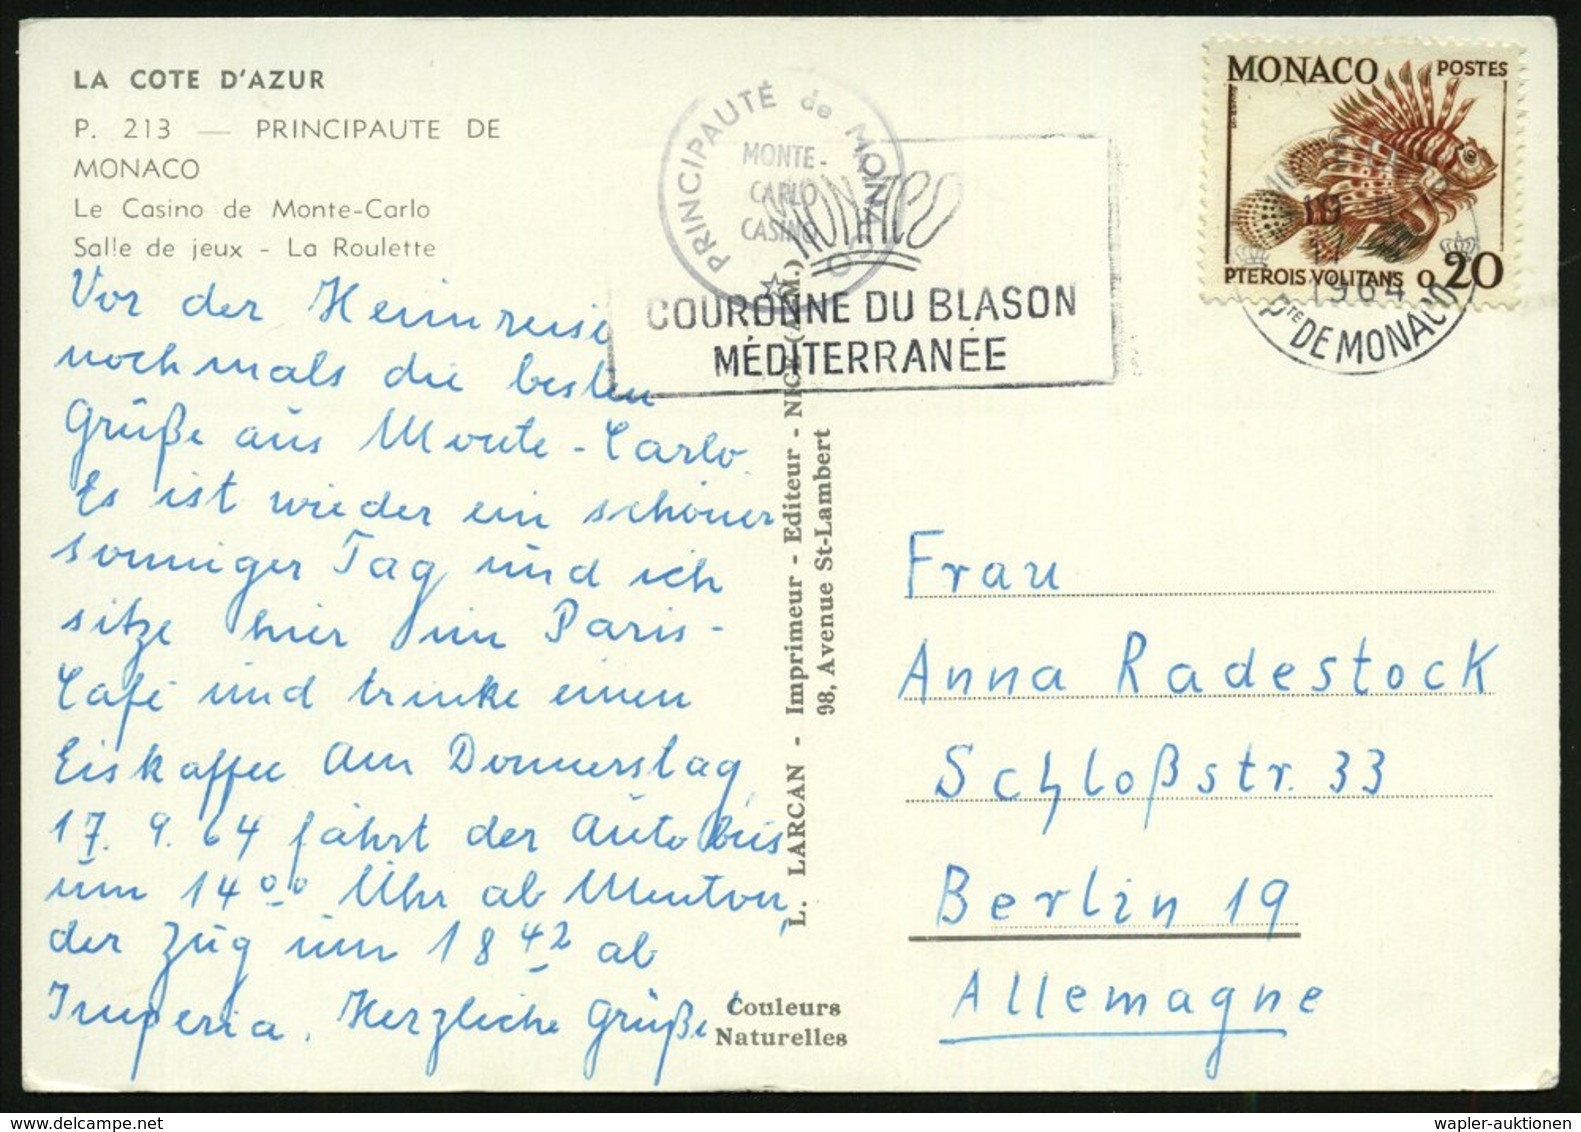 LA COTE D'AZUR
P. 213 — PRINCIPAUTE DE
MONACO
Le Casino de Monte-Carlo
Salle de jeux - La Roulette
Vor der Heimreise
nochmals die besten
Grüße aus Monte-Carlo.
Es ist wieder ein schöner
sonniger Tag und ich
sitze hier im Paris-
Café und trinke einen
Eiskaffee Am Donnerstag,
17. 9. 64 fährt der Autobus
um 14 00 Uhr ab Menton,
der Zug um 18 42 ab
Imperia. Herzliche Grüße
PRINCIPAUTÉ de MONACO
MONTE-
CARLO
CASINO
MONACO
COURONNE DU BLASON
MÉDITERRANÉE
L. LARCAN - Imprimeur - Editeur - NICE (A.-M.)
98, Avenue St-Lambert
Couleurs
Naturelles
MONACO POSTES
PTEROIS VOLITANS 0,20
1964
Pte DE MONACO
Frau
Anna Radestock
Schloßstr. 33
Berlin 19
Allemagne
wapler-auktionen